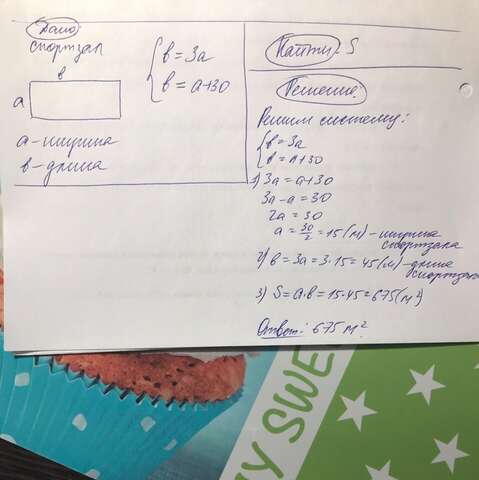 Дано:
спортзал
в
а
а - ширина
в - длина
{ в = 3а
в = а+30
Найти: S
Решение:
Решим систему:
{ в = 3а
в = а+30
1) 3а = а+30
3а - а = 30
2а = 30
а = 30/2 = 15 (м) - ширина
спортзала
2) в = 3а = 3·15 = 45 (м) - длина
спортзала
3) S = а·в = 15·45 = 675 (м²)
Ответ: 675 м²
Y SWE